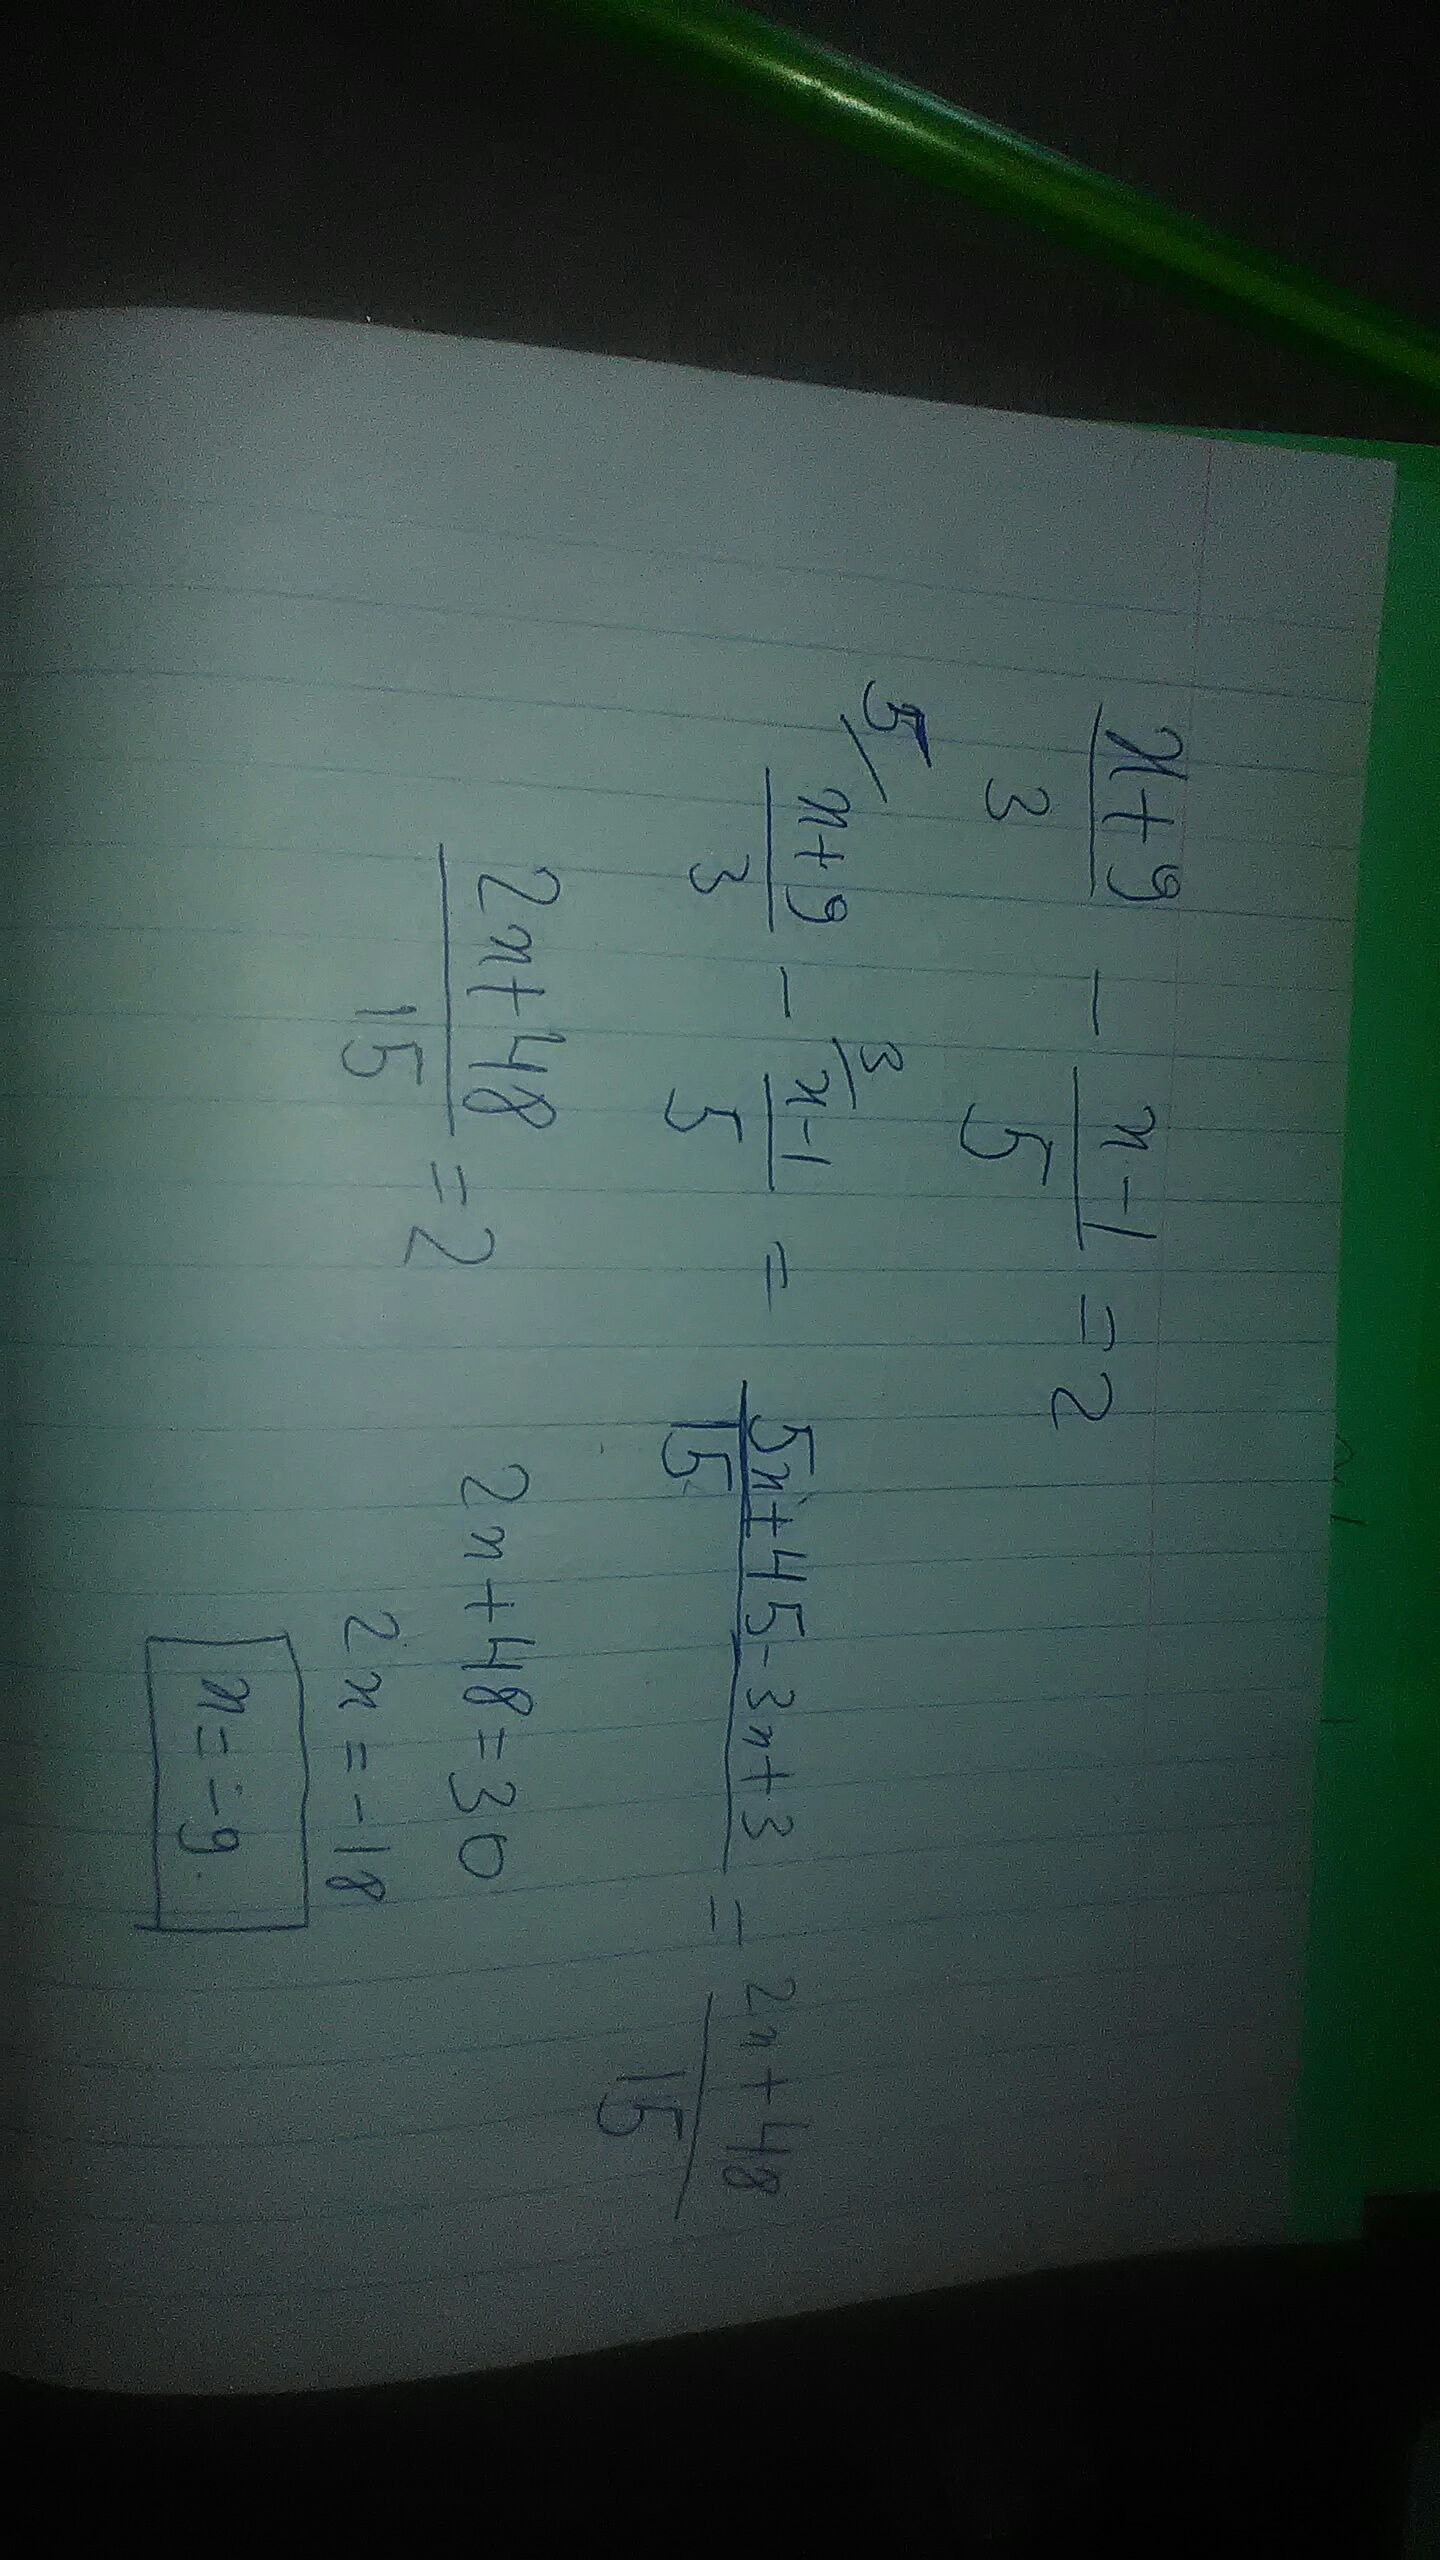 x+9/3 - x-1/5 = 2
5/ x+9/3 - 3/ x-1/5 = 5x+45-3x+3/15 = 2x+48/15
2x+48/15 = 2
2x+48=30
2x=-18
x=-9.